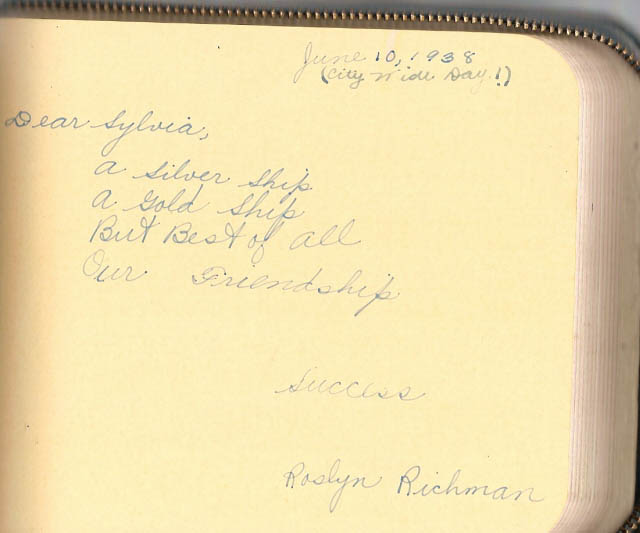 June 10, 1938
(City Wide Day!)
Dear Sylvia,
A Silver Ship
A Gold Ship
But Best of all
Our Friendship
Success
Roslyn Richman